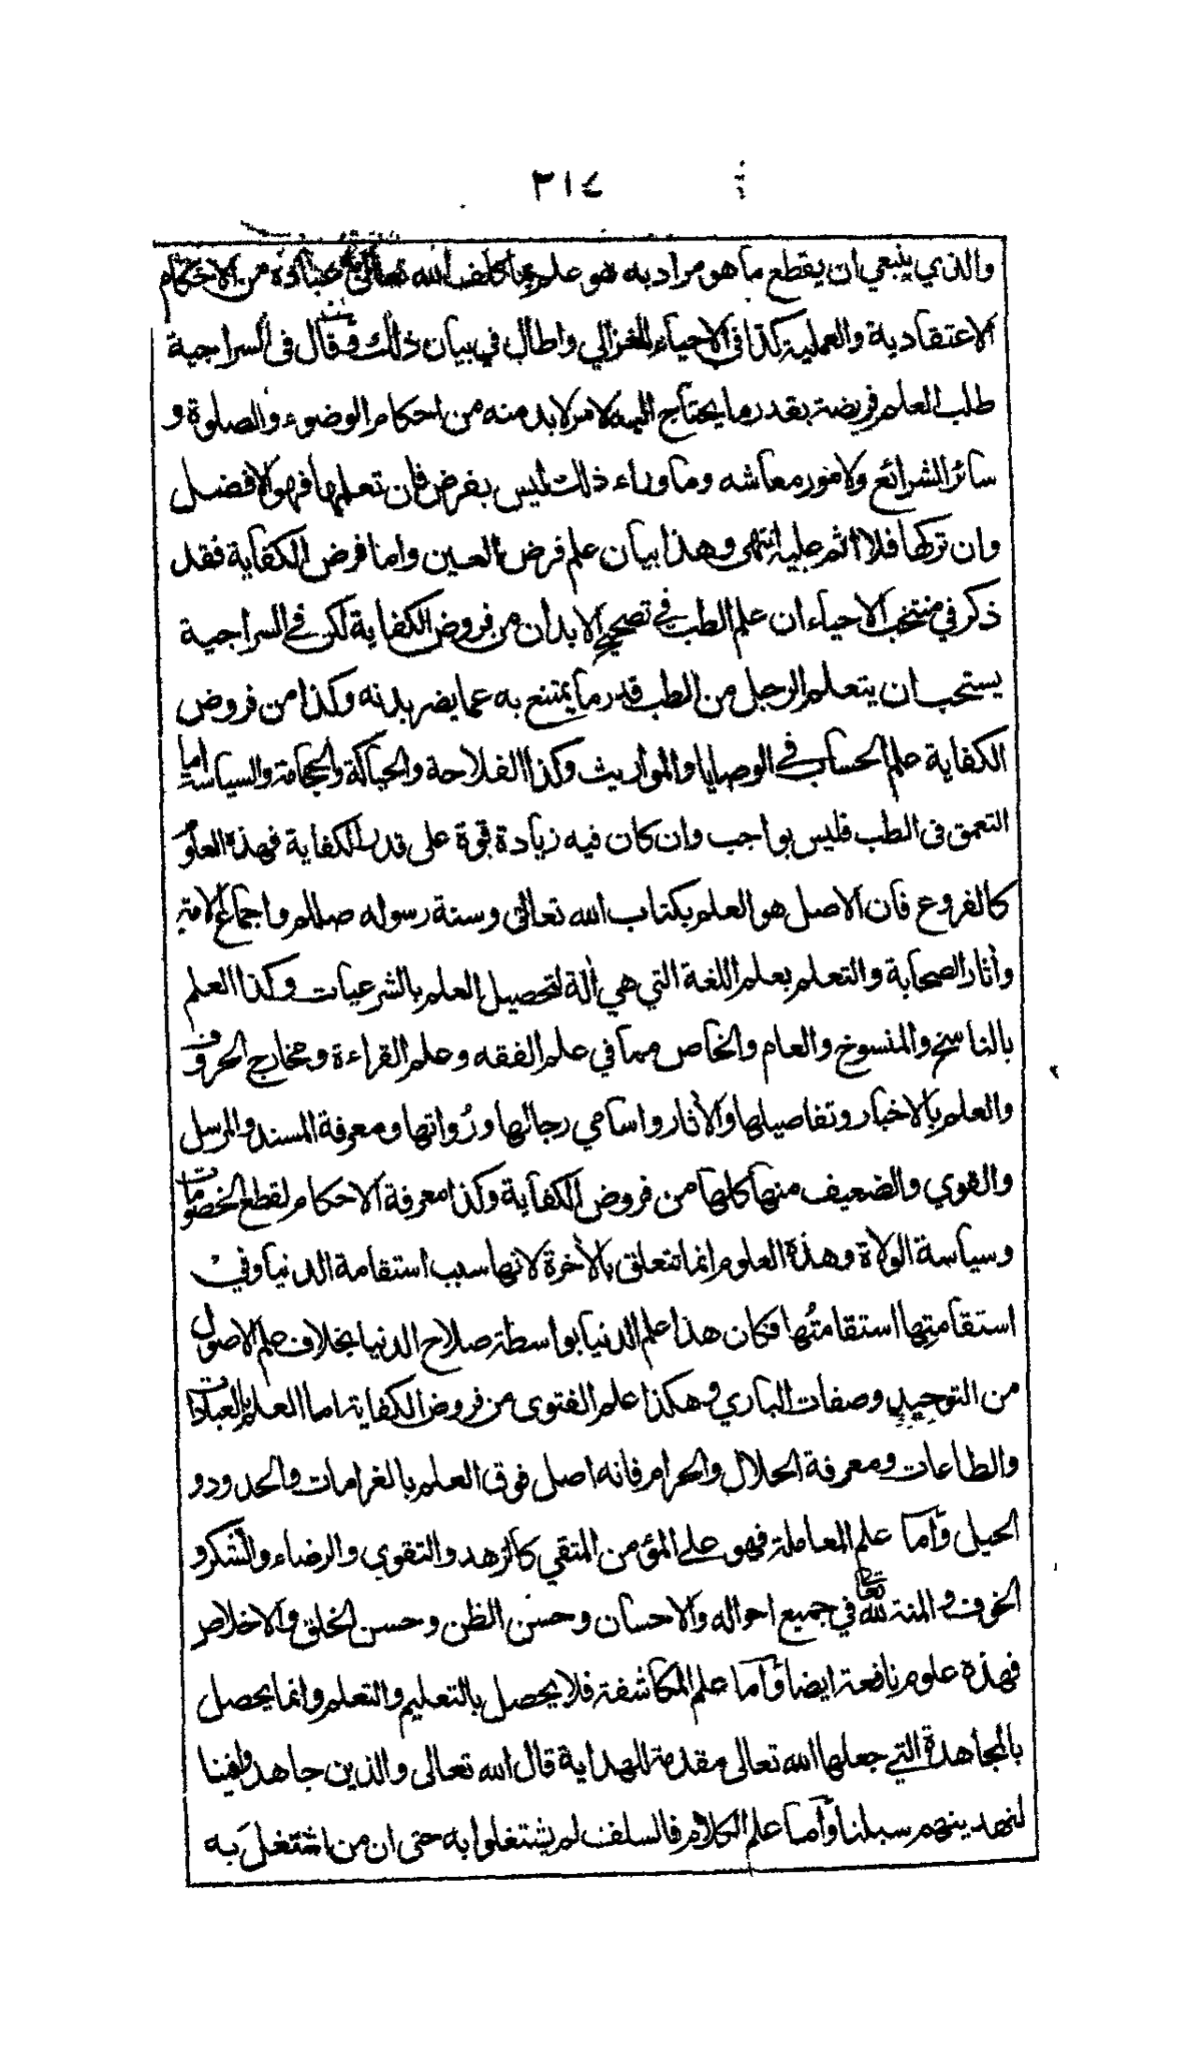 ٣١٤
والذي ينبغي ان يقطع ما هو مراد به هو علم بما كلف الله تعالى به عباده من الاحكام
الاعتقادية والعملية كذا فى الاحياء للغزالي واطال في بيان ذلك وقال فى السراجية
طلب العلم فريضة بقدر ما يحتاج اليه لامر لا بد منه من احكام الوضوء والصلوة و
سائر الشرائع ولامور معاشه وما وراء ذلك ليس بفرض فان تعلمها فهو الافضل
وان تركها فلا اثم عليه انتهى وهذا بيان علم فرض العين واما فرض الكفاية فقد
ذكر في منتخب الاحياء ان علم الطب في تصحيح الابدان من فروض الكفاية لكن في السراجية
يستحب ان يتعلم الرجل من الطب قدر ما يمتنع به عما يضر بدنه وكذا من فروض
الكفاية علم الحساب في الوصايا والمواريث وكذا الفلاحة والحياكة والحجامة والسياسة اما
التعمق فى الطب فليس بواجب وان كان فيه زيادة قوة على قدر الكفاية فهذه العلوم
كالفروع فان الاصل هو العلم بكتاب الله تعالى وسنة رسوله صللم واجماع الامة
وأثار الصحابة والتعلم بعلم اللغة التي هي ألة لتحصيل العلم بالشرعيات وكذا العلم
بالناسخ والمنسوخ والعام والخاص مما في علم الفقه وعلم القراءة ومخارج الحروف
والعلم بالاخبار وتفاصيلها والأثار واسامي رجالها ورُواتها ومعرفة المسند والمرسل
والقوي والضعيف منها كلها من فروض الكفاية وكذا معرفة الاحكام لقطع الخصومات
وسياسة الولاة وهذه العلوم انما تتعلق بالأخرة لانها سبب استقامة الدنيا وفي
استقامتِها استقامتُها فكان هذا علم الدنيا بواسطة صلاح الدنيا بخلاف علم الاصول
من التوحيد وصفات الباري وهكذا علم الفتوى من فروض الكفاية اما العلم بالعبادات
والطاعات ومعرفة الحلال والحرام فانه اصل فوق العلم بالغرامات والحدود و
الحيل وأما علم المعاملة فهو على المؤمن المتقي كالزهد والتقوي والرضاء والشكر و
الخوف والمنة لله تعا في جميع احواله والاحسان وحسن الظن وحسن الخلق والاخلاص
فهذه علوم نافعة ايضا وأما علم المكاشفة فلا يحصل بالتعليم والتعلم وانما يحصل
بالمجاهدة التي جعلها الله تعالى مقدمة للهداية قال الله تعالى والذين جاهدوا فينا
لنهدينهم سبلنا وأما علم الكلام فالسلف لم يشتغلوا به حتى ان من اشتغل به